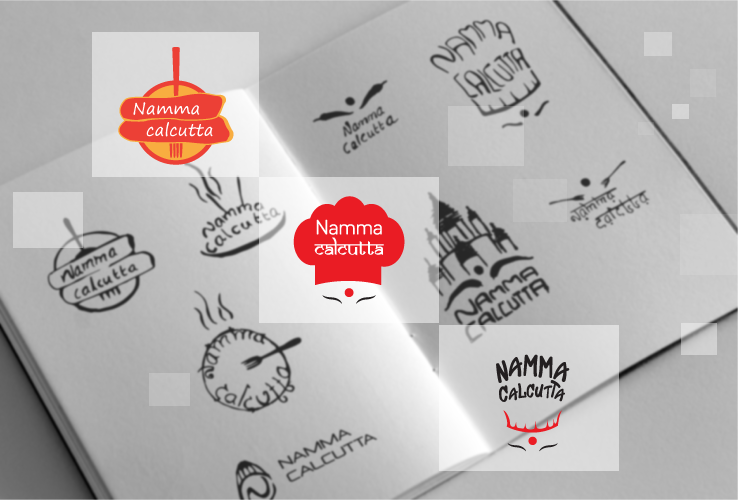 Namma
calcutta
Namma
calcutta
NAMMA
CALCUTTA
Namma
calcutta
Namma
calcutta
Namma
calcutta
Namma
calcutta
NAMMA
CALCUTTA
Namma
calcutta
NAMMA
CALCUTTA
NAMMA
CALCUTTA